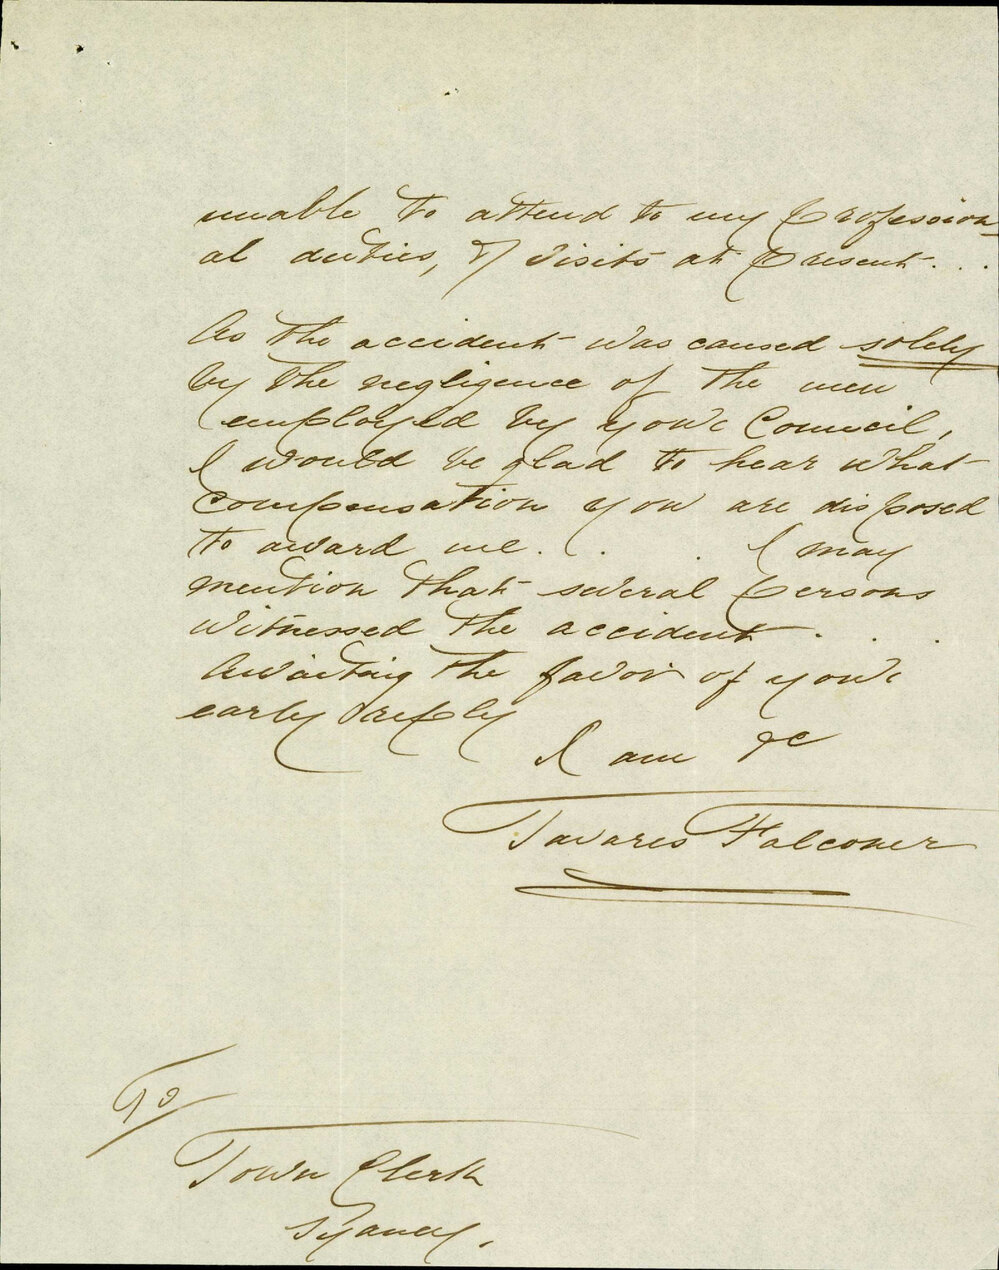 unable to attend to my Profession-
al duties, & visits at Present . . .
As the accident was caused solely
by the negligence of the men
employed by your Council,
I would be glad to hear what
compensation you are disposed
to award me . . . I may
mention that several Persons
witnessed the accident . . .
Awaiting the favor of your
early reply
I am &c
Tavares Falconer
To/
Town Clerk
Sydney.